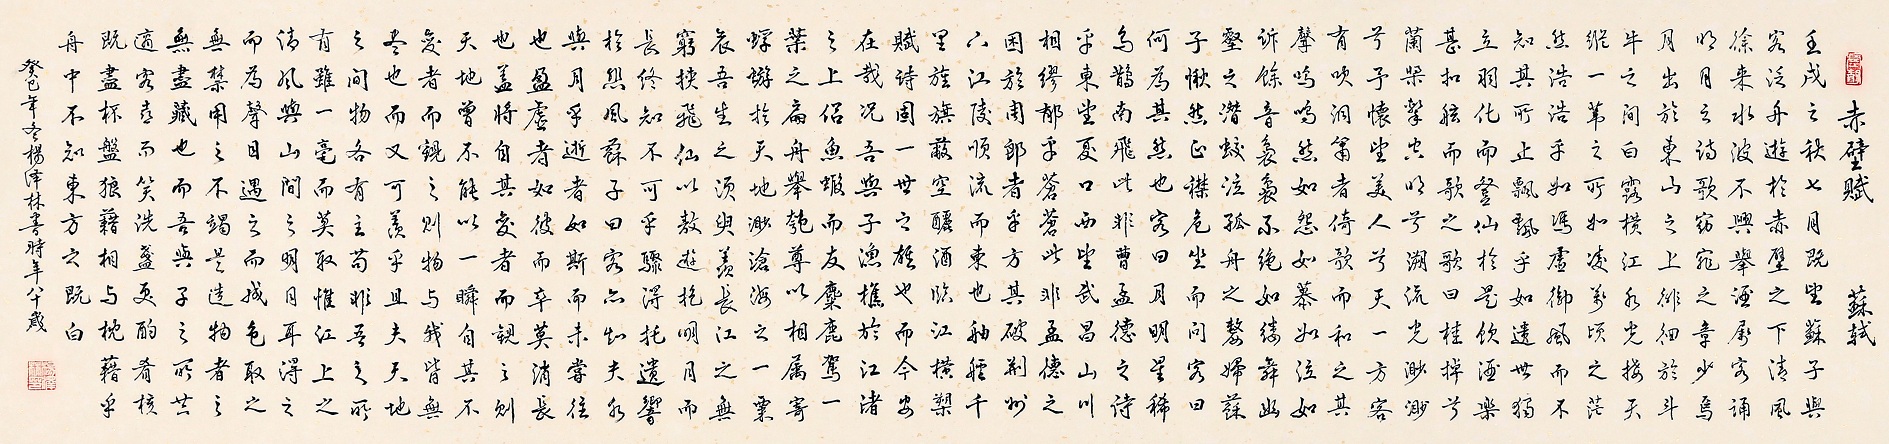 赤壁賦 蘇軾
壬戌之秋七月既望蘇子與
客泛舟遊於赤壁之下清風
徐来水波不興舉酒屬客誦
明月之詩歌窈窕之章少焉
月出於東山之上徘徊於斗
牛之間白露横江水光接天
縱一葦之所如凌萬頃之茫
然浩浩乎如馮虛御風而不
知其所止飄飄乎如遺世獨
立羽化而登仙於是飲酒樂
甚扣舷而歌之歌曰桂棹兮
蘭槳擊空明兮溯流光渺渺
兮予懷望美人兮天一方客
有吹洞簫者倚歌而和之其
聲嗚嗚然如怨如慕如泣如
訴餘音裊裊不絕如縷舞幽
壑之潛蛟泣孤舟之嫠婦蘇
子愀然正襟危坐而問客曰
何為其然也客曰月明星稀
烏鵲南飛此非曹孟德之詩
乎東望夏口西望武昌山川
相繆郁乎蒼蒼此非孟德之
困於周郎者乎方其破荆州
下江陵順流而東也舳艫千
里旌旗蔽空釃酒臨江横槊
賦詩固一世之雄也而今安
在哉况吾與子漁樵於江渚
之上侣魚蝦而友麋鹿駕一
葉之扁舟舉匏尊以相属寄
蜉蝣於天地渺滄海之一粟
哀吾生之須臾羨長江之無
窮挾飛仙以敖遊抱明月而
長終知不可乎驟得托遺響
於悲風蘇子曰客亦知夫水
與月乎逝者如斯而未嘗往
也盈虛者如彼而卒莫消長
也盖將自其變者而觀之則
天地曾不能以一瞬自其不
變者而觀之則物与我皆無
盡也而又可羨乎且夫天地
之間物各有主苟非吾之所
有雖一毫而莫取惟江上之
清風與山間之明月耳得之
而為聲目遇之而成色取之
無禁用之不竭是造物者之
無盡藏也而吾與子之所共
適客喜而笑洗盞更酌肴核
既盡杯盤狼藉相与枕藉乎
舟中不知東方之既白
癸巳年冬楊澤林書時年八十歲